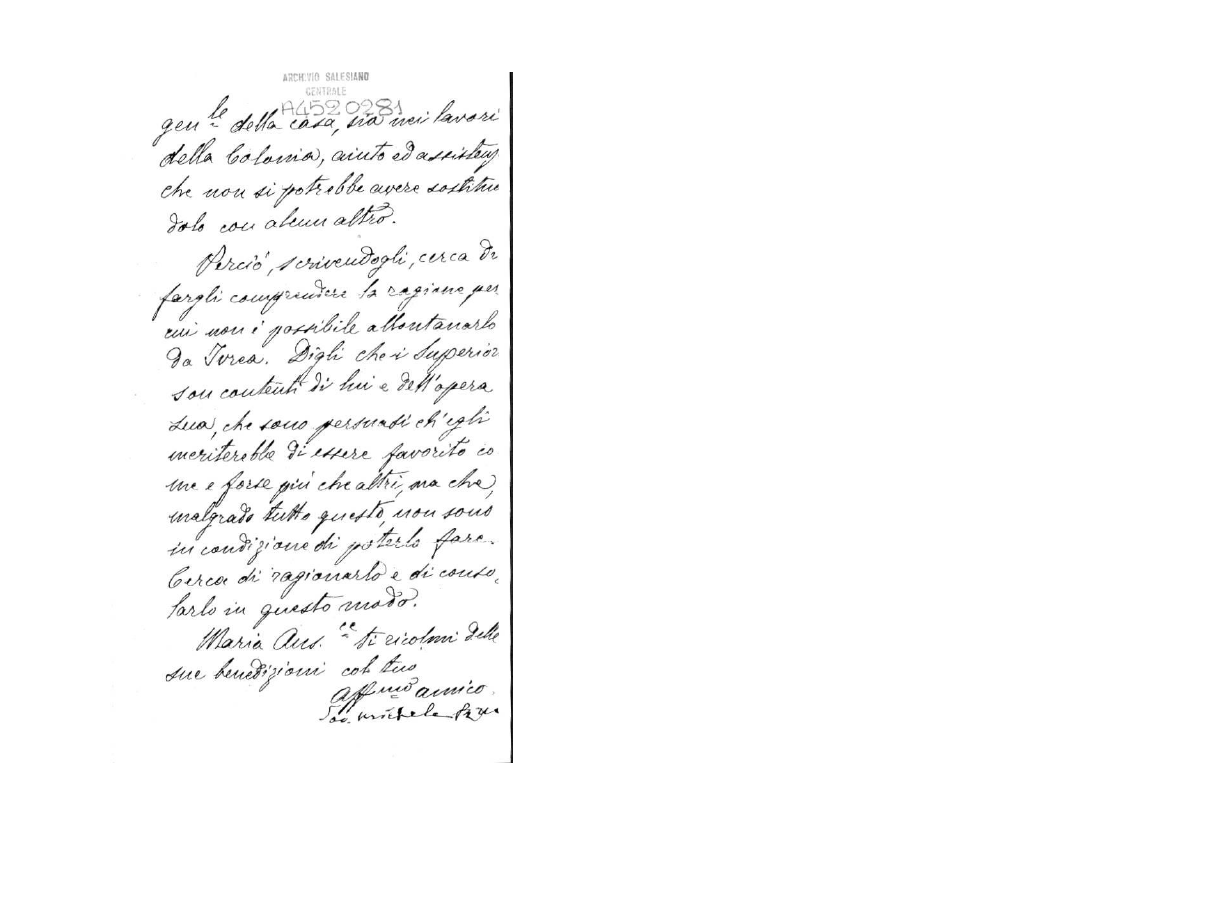 ARCHIVIO SALESIANO
CENTRALE
A4520281
gen.le della casa, sia nei lavori
della Colonia, aiuto ed assistenz
che non si potrebbe avere sostituen
dolo con alcun altro.
Perciò, scrivendogli, cerca di
fargli comprendere la ragione per
cui non è possibile allontanarlo
da Ivrea. Digli che i Superior
son contenti di lui e dell'opera
sua, che sono persuasi ch'egli
meriterebbe di essere favorito co
me e forse più che altri, ma che,
malgrado tutto questo, non sono
in condizione di poterlo fare.
Cerca di ragionarlo e di conso,
larlo in questo modo.
Maria Aus.ce ti ricolmi delle
sue benedizioni col tuo
Aff.mo amico
Sac. Michele Rua